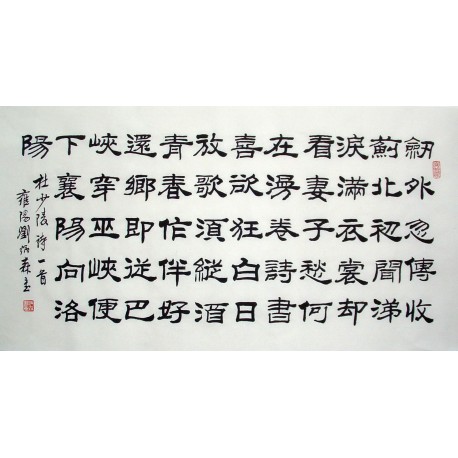 劒外忽傳收
薊北初聞涕
淚滿衣裳却
看妻子愁何
在漫卷詩書
喜欲狂白日
放歌須縱酒
青春作伴好
還鄉即從巴
峽穿巫峽便
下襄陽向洛
陽
杜少陵詩一首
雍陽劉炳森書